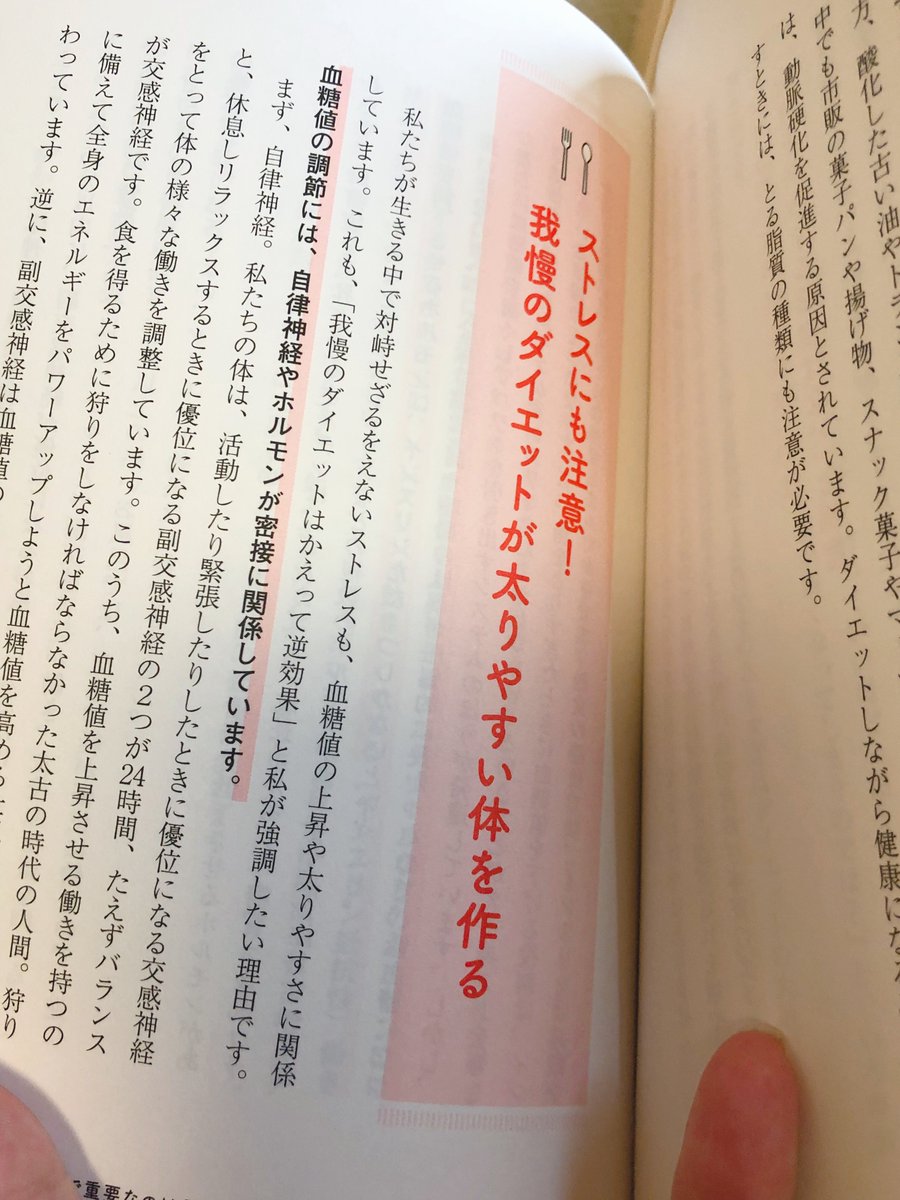 力、酸化した古い油やトラン
中でも市販の菓子パンや揚げ物、スナック菓子やマ
は、動脈硬化を促進する原因とされています。ダイエットしながら健康にな
すときには、とる脂質の種類にも注意が必要です。
ストレスにも注意!
我慢のダイエットが太りやすい体を作る
私たちが生きる中で対峙せざるをえないストレスも、血糖値の上昇や太りやすさに関係
しています。これも、「我慢のダイエットはかえって逆効果」と私が強調したい理由です。
血糖値の調節には、自律神経やホルモンが密接に関係しています。
まず、自律神経。私たちの体は、活動したり緊張したりしたときに優位になる交感神経
と、休息しリラックスするときに優位になる副交感神経の2つが24時間、たえずバランス
をとって体の様々な働きを調整しています。このうち、血糖値を上昇させる働きを持つの
が交感神経です。食を得るために狩りをしなければならなかった太古の時代の人間。狩り
に備えて全身のエネルギーをパワーアップしようと血糖値を高める
わっています。逆に、副交感神経は血糖値の
で重要なのは